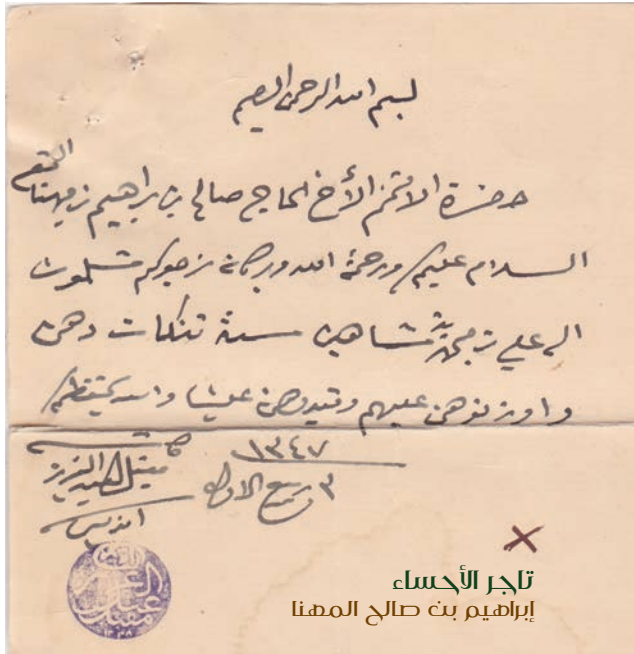 بسم الله الرحمن الرحيم
حضرة الافخم الأخ الحاج صالح بن براهيم بن مهنا المحترم
السلام عليكم ورحمة الله وبركاته نرجوكم تسلمون
الى علي بن شاهين ستة تنكات دهن
واوزنوهن عليهم وقيدوهن علينا والله يحفظكم
١٣٤٧
٣ ربيع الاول
العبد العزيز
تاجر الأحساء
إبراهيم بن صالح المهنا